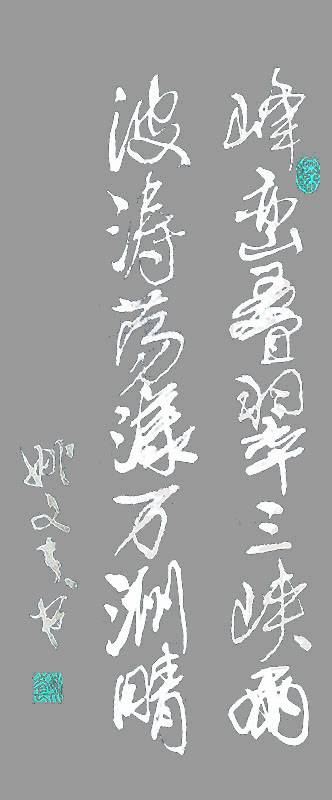 峰峦叠翠三峡雨
波涛荡漾万洲晴
姚文